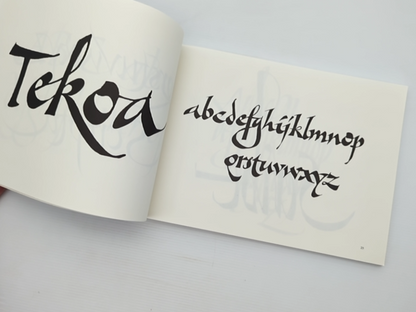 Tekoa
abcdefghijklmnop
qrstuvwxyz